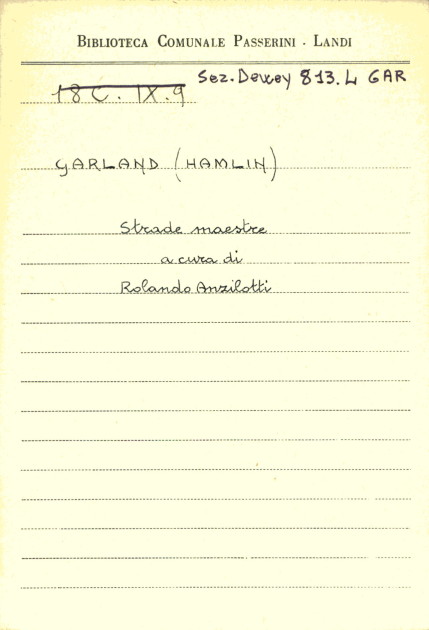 BIBLIOTECA COMUNALE PASSERINI - LANDI
Sez. Dewey 813.4 GAR
18 C. IX. 9
GARLAND (HAMLIN)
Strade maestre
a cura di
Rolando Anzilotti